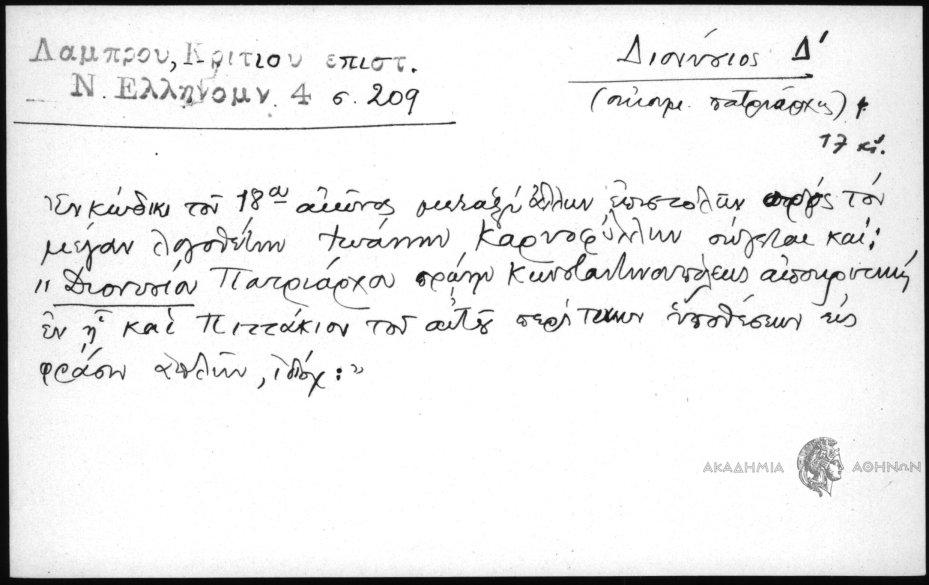 Λαμπρου, Κριτιου επιστ.
Ν. Ελληνομν. 4 σ. 209
Διονύσιος Δ'
(οικουμ. πατριάρχης)
17 αἰ.
Ἐν κώδικι τοῦ 18ου αἰῶνος μεταξὺ ἄλλων ἐπιστολῶν πρὸς τὸν
μέγαν λογοθέτην Ἰωάννην Καρυοφύλλην σώζεται καί:
"Διονυσίου Πατριάρχου πρῴην Κωνσταντινουπόλεως ἀποκριτική
ἐν ᾗ καὶ Πιττάκιον τοῦ αὐτοῦ περί τινων ὑποθέσεων εἰς
φράσιν ἁπλῆν,
ΑΚΑΔΗΜΙΑ ΑΘΗΝΩΝ